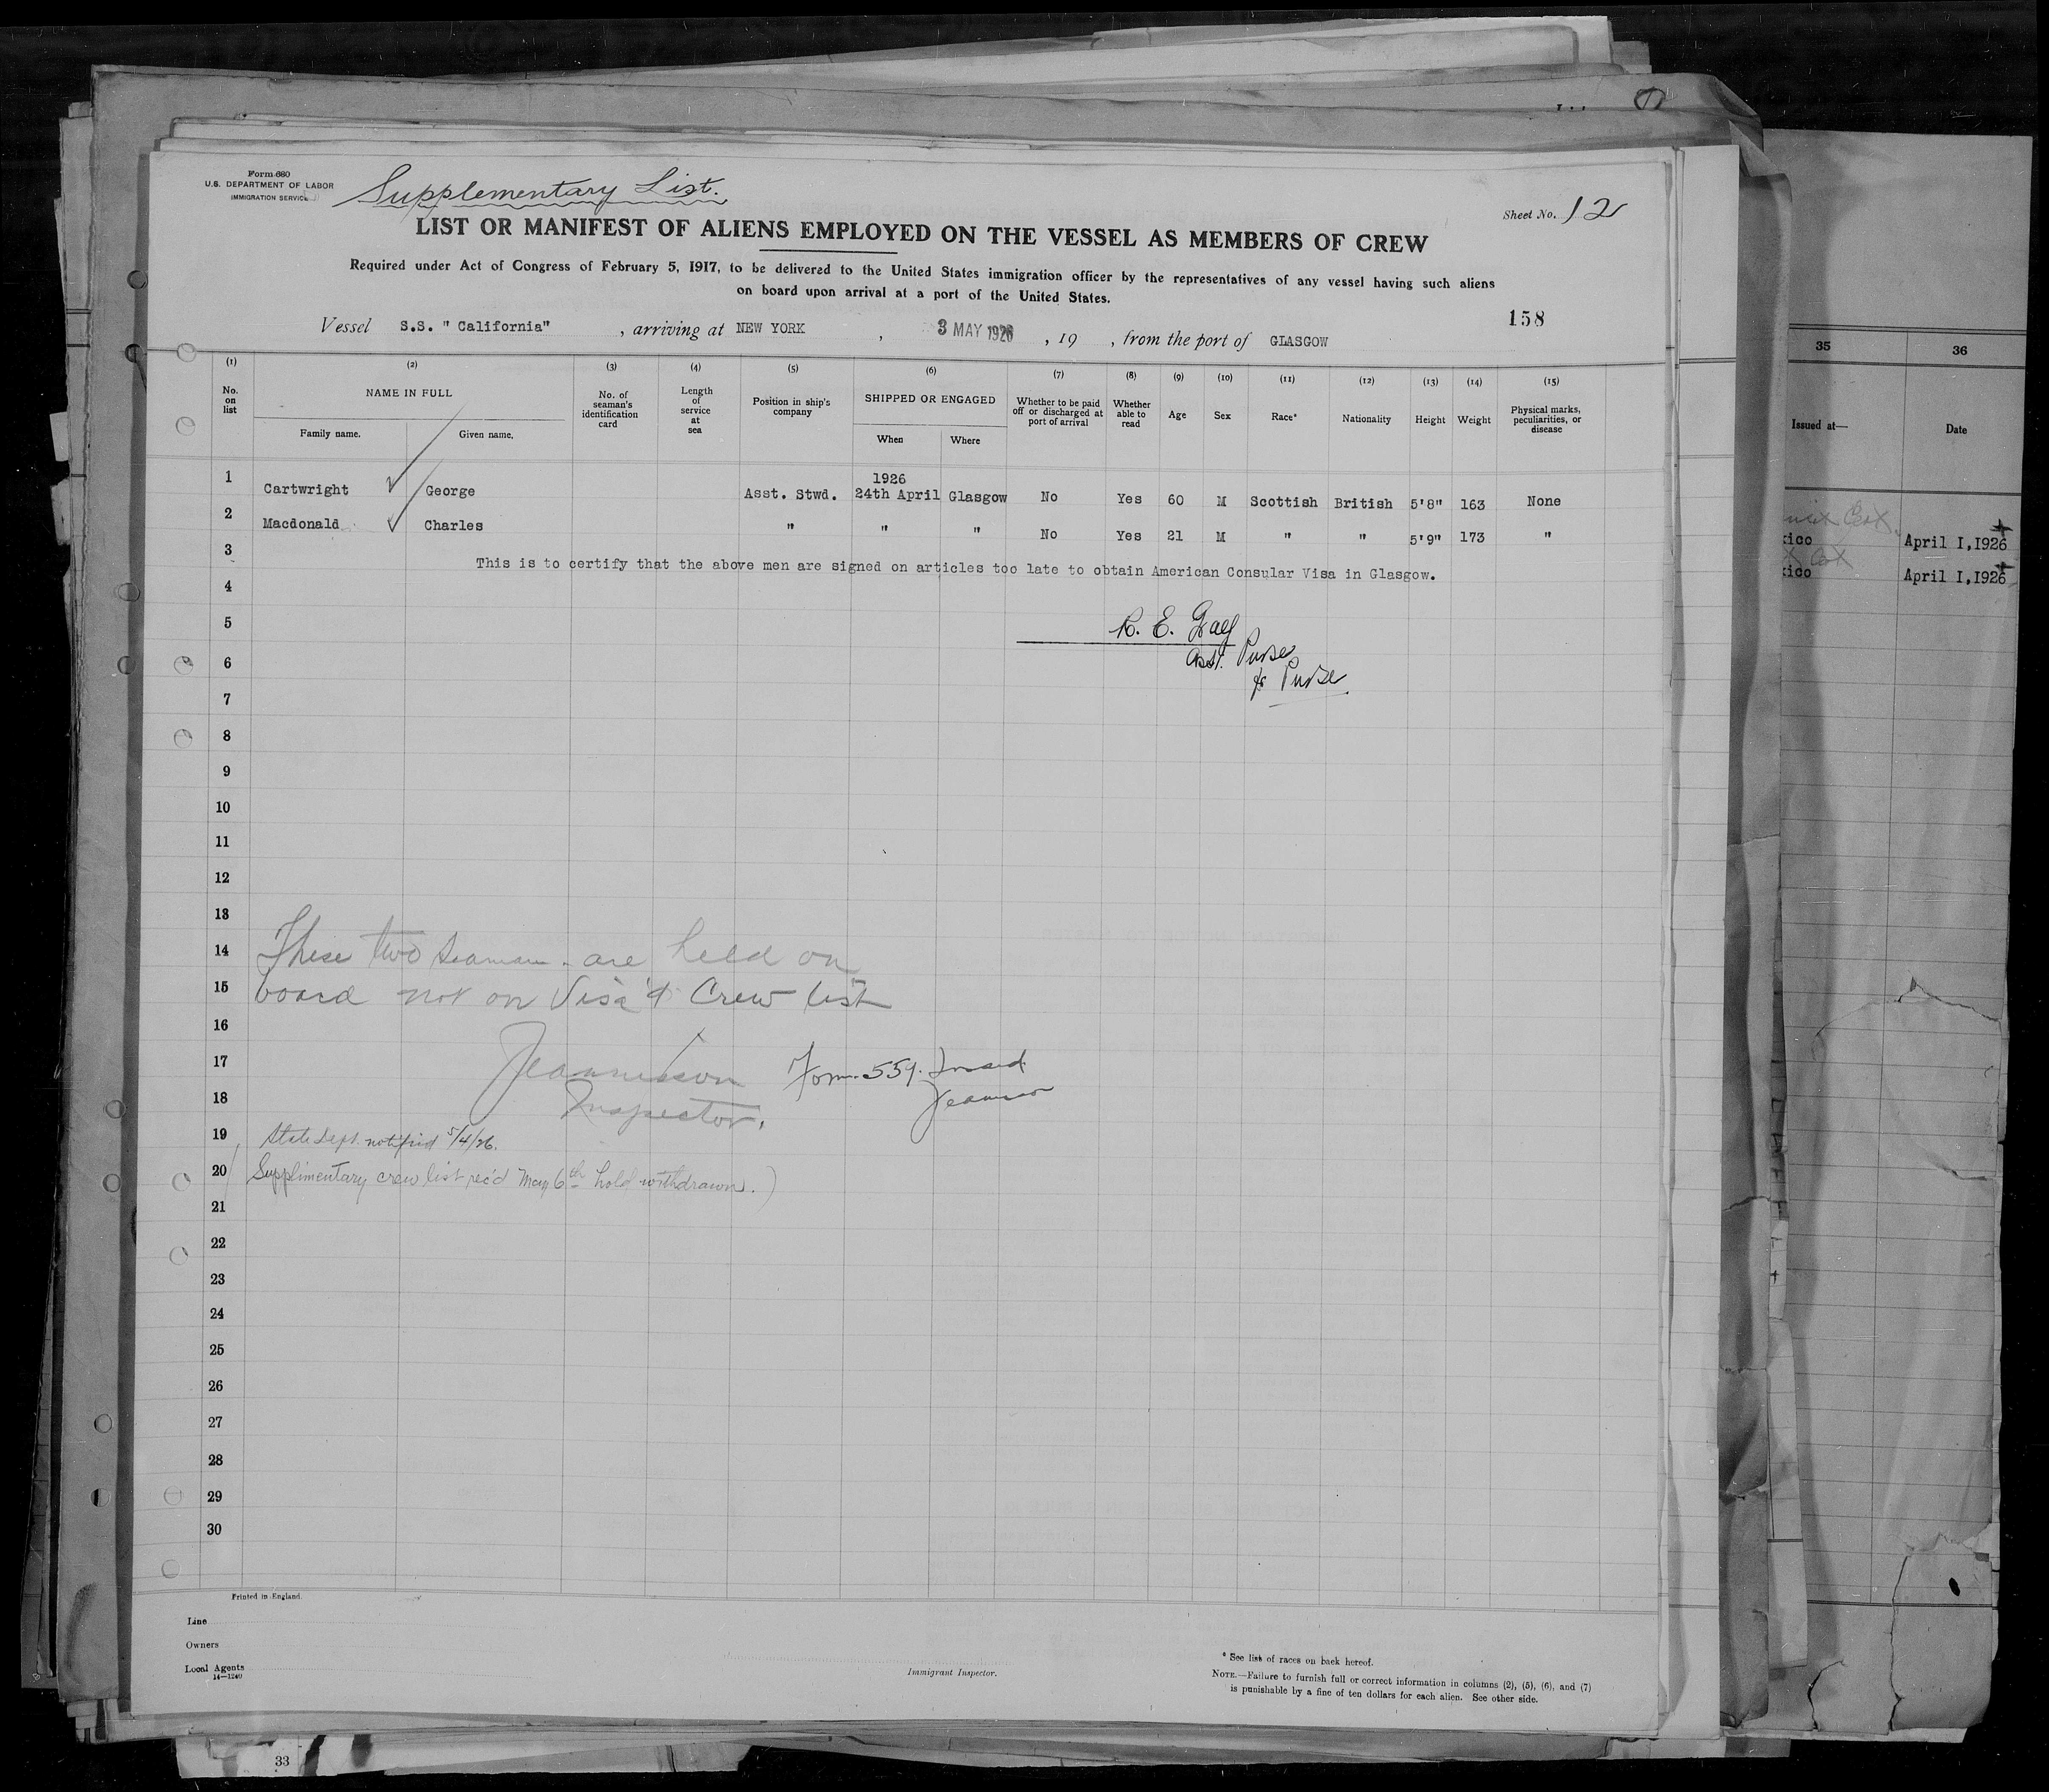 Form 680
U.S. DEPARTMENT OF LABOR
IMMIGRATION SERVICE
Supplementary List.
Sheet No. 12
LIST OR MANIFEST OF ALIENS EMPLOYED ON THE VESSEL AS MEMBERS OF CREW
Required under Act of Congress of February 5, 1917, to be delivered to the United States immigration officer by the representatives of any vessel having such aliens
on board upon arrival at a port of the United States.
158
Vessel S.S. " California" , arriving at NEW YORK , 3 MAY 1926 , 19 , from the port of GLASGOW
(1) (2) (3) (4) (5) (6) (7) (8) (9) (10) (11) (12) (13) (14) (15)
No. on list
NAME IN FULL
Family name. Given name.
No. of seaman's identification card
Length of service at sea
Position in ship's company
SHIPPED OR ENGAGED
When Where
Whether to be paid off or discharged at port of arrival
Whether able to read
Age
Sex
Race*
Nationality
Height
Weight
Physical marks, peculiarities, or disease
1926
1 Cartwright George Asst. Stwd. 24th April Glasgow No Yes 60 M Scottish British 5'8" 163 None
2 Macdonald Charles " " " No Yes 21 M " " 5'9" 173 "
3
This is to certify that the above men are signed on articles too late to obtain American Consular Visa in Glasgow.
4
5 R. E.
6 Asst. Purser
7 Purser
8
9
10
11
12
13
14 These two seaman are held on
15 board not on Visa'd Crew list
16
17 Form 559.
18 Inspector.
19 State Dept. notified 5/4/26.
20 Supplimentary crew list rec'd May 6th hold withdrawn.)
21
22
23
24
25
26
27
28
29
30
Printed in England.
Line
Owners
Local Agents
14—1240
Immigrant Inspector.
* See list of races on back hereof.
NOTE.—Failure to furnish full or correct information in columns (2), (5), (6), and (7)
is punishable by a fine of ten dollars for each alien. See other side.
35 36
Issued at— Date
xico April I,1926
xico April I,1926
33